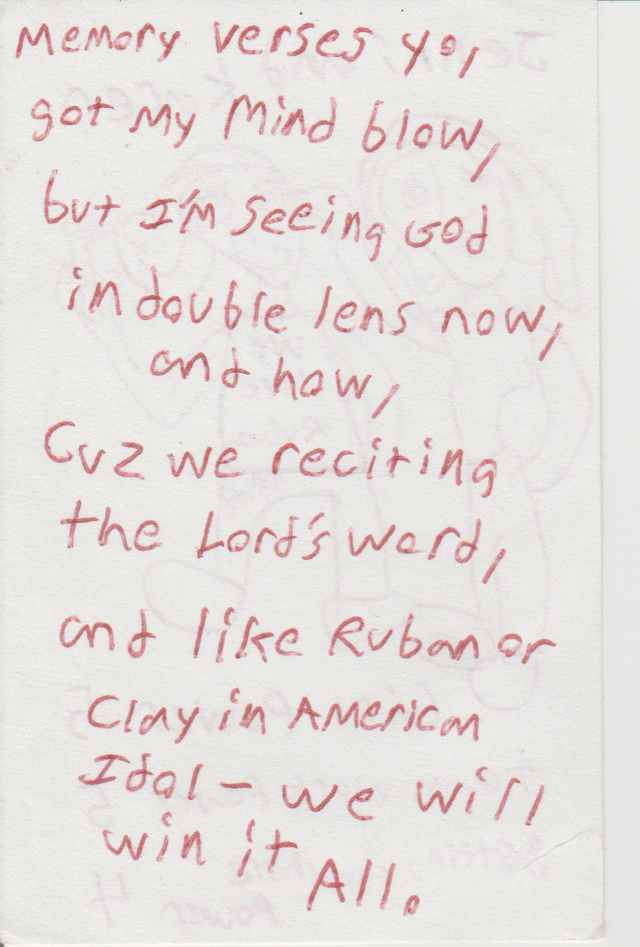 Memory verses yo,
got my Mind blow,
but I'm seeing God
in double lens now,
and how,
Cuz we reciting
the Lord's word,
and like Ruban or
Clay in American
Idol - we will
win it
All.